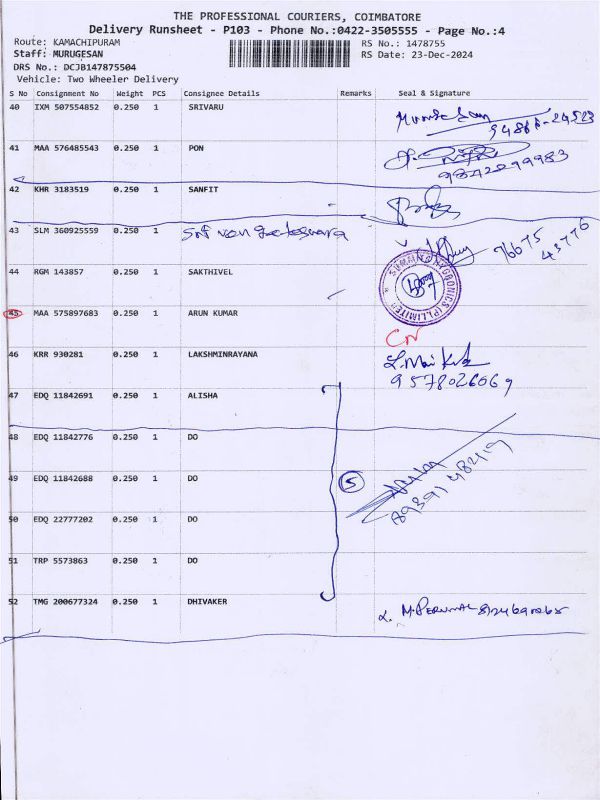 THE PROFESSIONAL COURIERS, COIMBATORE
Delivery Runsheet - P103 - Phone No.:0422-3505555 - Page No.:4
Route: KAMACHIPURAM RS No.: 1478755
Staff: MURUGESAN RS Date: 23-Dec-2024
DRS No.: DCJB147875504
Vehicle: Two Wheeler Delivery
S No Consignment No Weight PCS Consignee Details Remarks Seal & Signature
40 IXM 507554852 0.250 1 SRIVARU
41 MAA 576485543 0.250 1 PON
9842899983
42 KHR 3183519 0.250 1 SANFIT
43 SLM 360925559 0.250 1
76675
43776
44 RGM 143857 0.250 1 SAKTHIVEL
45 MAA 575897683 0.250 1 ARUN KUMAR
CN
46 KRR 930281 0.250 1 LAKSHMINRAYANA
9578026069
47 EDQ 11842691 0.250 1 ALISHA
48 EDQ 11842776 0.250 1 DO
49 EDQ 11842688 0.250 1 DO
5
8939148419
50 EDQ 22777202 0.250 1 DO
51 TRP 5573863 0.250 1 DO
52 TMG 200677324 0.250 1 DHIVAKER
M. PERUMAL